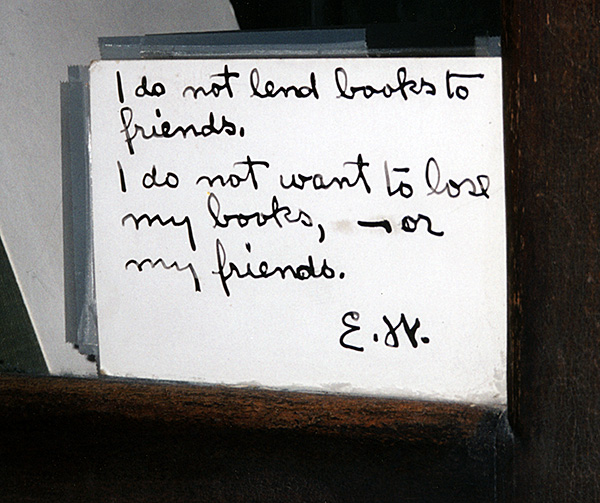 I do not lend books to
friends.
I do not want to lose
my books, — or
my friends.
E.W.